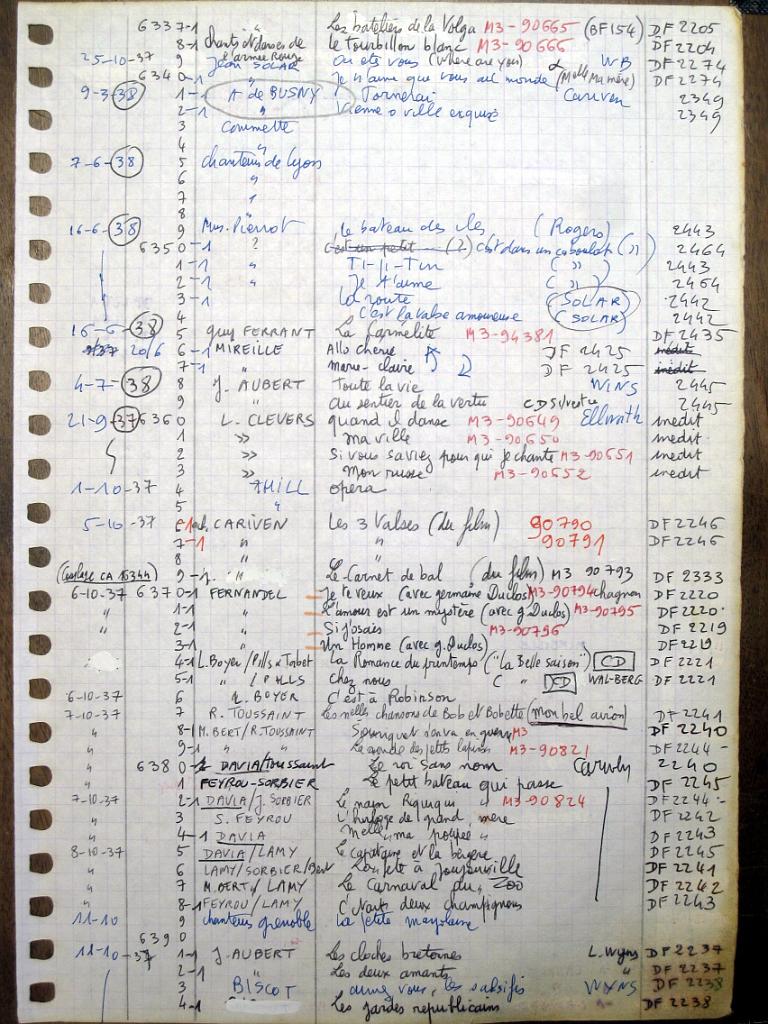 6337-1 " Les bateliers de la Volga M3-90665 (BF154) DF 2205
8-1 chants et danses de l'armée Rouge le tourbillon blanc M3-90666 DF 2204
25-10-37 9 Jean SOLAR Où êtes vous (Where are you) WB DF 2274
6340-1 " Je n'aime que vous au monde DF 2274
9-3-38 1-1 A de BUSNY Tornerai Cariven 2349
2-1 " Vienne ville exquise 2349
3 Commette
4 "
7-6-38 5 chanteurs de Lyon
6 "
7 "
8 "
16-6-38 9 Mus. Pierrot le bateau des iles (Rogers) 2443
6350-1 ? c'est un petit .... (?) c'est dans un caboulot (") 2464
1-1 " TI-PI-TIN (") 2443
2-1 " Je t'aime (") 2464
3-1 La route (SOLAR) 2442
4 C'est la valse amoureuse (SOLAR) 2442
16-6-38 5 guy FERRANT La M3-94381 DF 2435
20/6 6-1 MIREILLE Allo cherie DF 2425 inédit
7-1 " marie-claire DF 2425 inédit
4-7-38 8 J. AUBERT Toute la vie WINS 2445
9 " Au sentier de la vertu CD Silvestre 2445
21-9-37 6360 L. CLEVERS quand il danse M3-90649 inédit
1 " ma ville M3-90650 inédit
2 " Si vous saviez pour qui je chante M3-90651 inédit
3 " Mon russe M3-90652 inédit
1-10-37 4 7HILL opera
5 "
5-10-37 6-1 CARIVEN Les 3 Valses (du film) 90790 DF 2246
7-1 " " 90791 DF 2246
8
9 " Le Carnet de bal (du film) M3 90793 DF 2333
6-10-37 6370 FERNANDEL Je te veux (avec germaine Duclos) M3-90794 chagnon DF 2220
" 1-1 L'amour est un mystère (avec g. Duclos) M3-90795 DF 2220
" 2-1 " Si j'osais M3-90796 DF 2219
3-1 " Un Homme (avec g. Duclos) DF 2219
4-1 L. Boyer/Pills & Tabet La Romance du printemps ("La Belle saison") CD DF 2221
5-1 "/PILLS chez nous ( " CD WAL-BERG DF 2221
6-10-37 6 L. BOYER C'est à Robinson
7-10-37 7 R. TOUSSAINT Les nelles chansons de Bob et Bobette (mon bel avion) DF 2241
" 8-1 M. BERT/R. TOUSSAINT s'en va en guerre M3 DF 2240
" 9-1 " " La ronde des petits lapins M3-90821 DF 2244
" 6380 DAVIA/Toussaint Le roi sans nom 2240
" 1 FEYROU-SORBIER Le petit bateau qui passe DF 2245
7-10-37 2-1 DAVIA/J. SORBIER Le nain Riquiqui M3-90824 DF 2244
" 3 S. FEYROU L'horloge de grand'mère DF 2242
" 4-1 DAVIA Melle ma poupée DF 2243
8-10-37 5 DAVIA/LAMY Le capitaine et la bergère DF 2245
" 6 LAMY/SORBIER/Bert DF 2241
" 7 M. BERT/LAMY Le Carnaval du ZOO DF 2242
" 8-1 FEYROU/LAMY deux champignons DF 2243
11-10 9 chanteurs grenoble La petite
6390
11-10-37 1-1 J. AUBERT Les cloches bretonnes L. Wyns DF 2237
2-1 " Les deux amants " DF 2237
3 BISCOT aimez vous les salsifis WYNS DF 2238
4-1 Les gardes republicains DF 2238